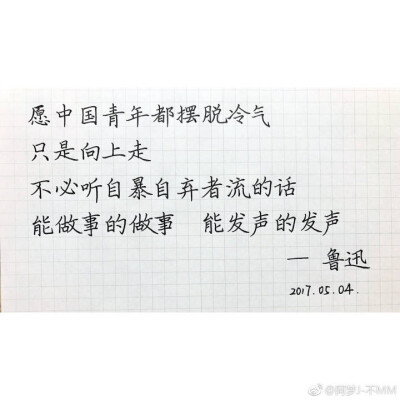 愿中国青年都摆脱冷气
只是向上走
不必听自暴自弃者流的话
能做事的做事　能发声的发声
— 鲁迅
2017.05.04.